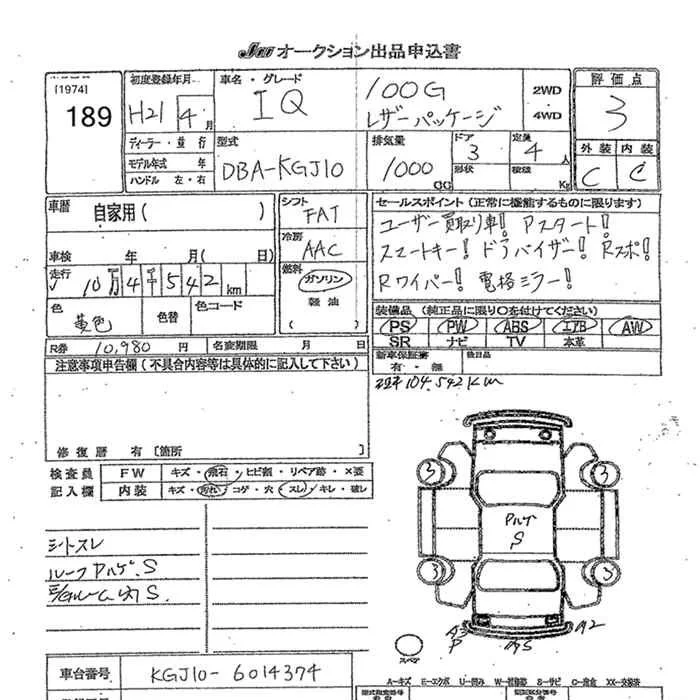 オークション出品申込書
[1974]
189
初度登録年月
H21 4月
車名・グレード
IQ
100G
レザーパッケージ
2WD
4WD
評価点
3
外装 内装
C C
ディーラー・並行
モデル年式 年
ハンドル 左・右
型式
DBA-KGJ10
排気量
1000
CC
ドア
3
形状
定員
4人
積載
Kg
車歴
自家用( )
車検 年 月( 日)
走行
10万4千542km
色
黄色
色替
色コード
シフト
FAT
冷房
AAC
燃料
ガソリン
軽油
( )
セールスポイント(正常に機能するものに限ります)
ユーザー買取り車! Pスタート!
スマートキー! ドラバイザー! Rスポ!
Rワイパー! 電格ミラー!
装備品(純正品に限り○を付けてください)
PS PW ABS エアB AW
SR ナビ TV 本革
新車保証書
有・無
後日品
104,542km
R券 10,980円
名変期限 月 日
注意事項申告欄(不具合内容等は具体的に記入して下さい)
修復歴 有 [箇所 ]
検査員
記入欄
FW キズ・飛石・ヒビ割・リペア跡・×要
内装 キズ・汚れ・コゲ・穴・スレ・キレ・破レ
シートスレ
ルーフPアルゲ.S
S
3
3
3
3
Pアルゲ
S
A3
P
A2
スペア
車台番号
KGJ10-6014374
A-キズ E-エクボ U-凹み W-補修跡 S-サビ C-腐食 XX-交換済